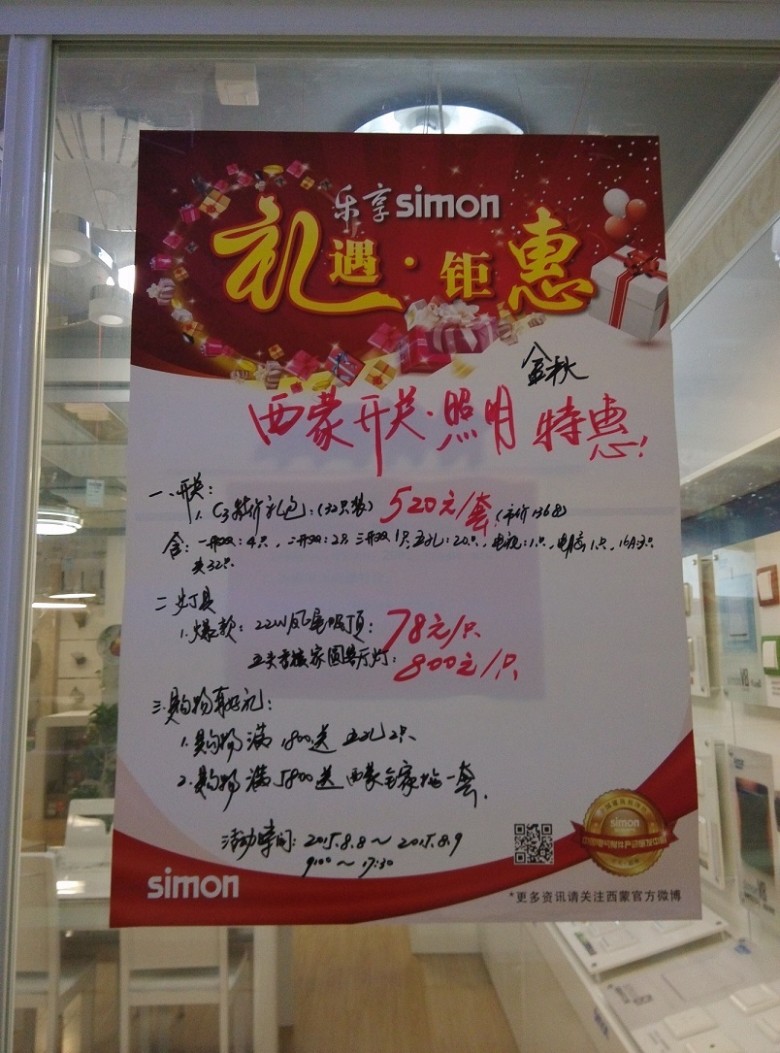 乐享simon
礼遇·钜惠
金秋
西蒙开关·照明特惠!
一、开关:
1. C3特价礼包:(32只装) 520元/套(市价1368)
含:一开双:4只,二开双:2只 三开双1只 五孔:20只,电视:1只,电脑1只,16A:3只
共32只
二、灯具
1.爆款:22W凤尾吸顶: 78元/只
圆客厅灯: 800元/只
三.购物有好礼:
1.购物满1800送五孔2只
2.购物满5800送西蒙全家福一套.
活动时间: 2015.8.8~2015.8.9
9:00~17:30
simon
simon
*更多资讯请关注西蒙官方微博